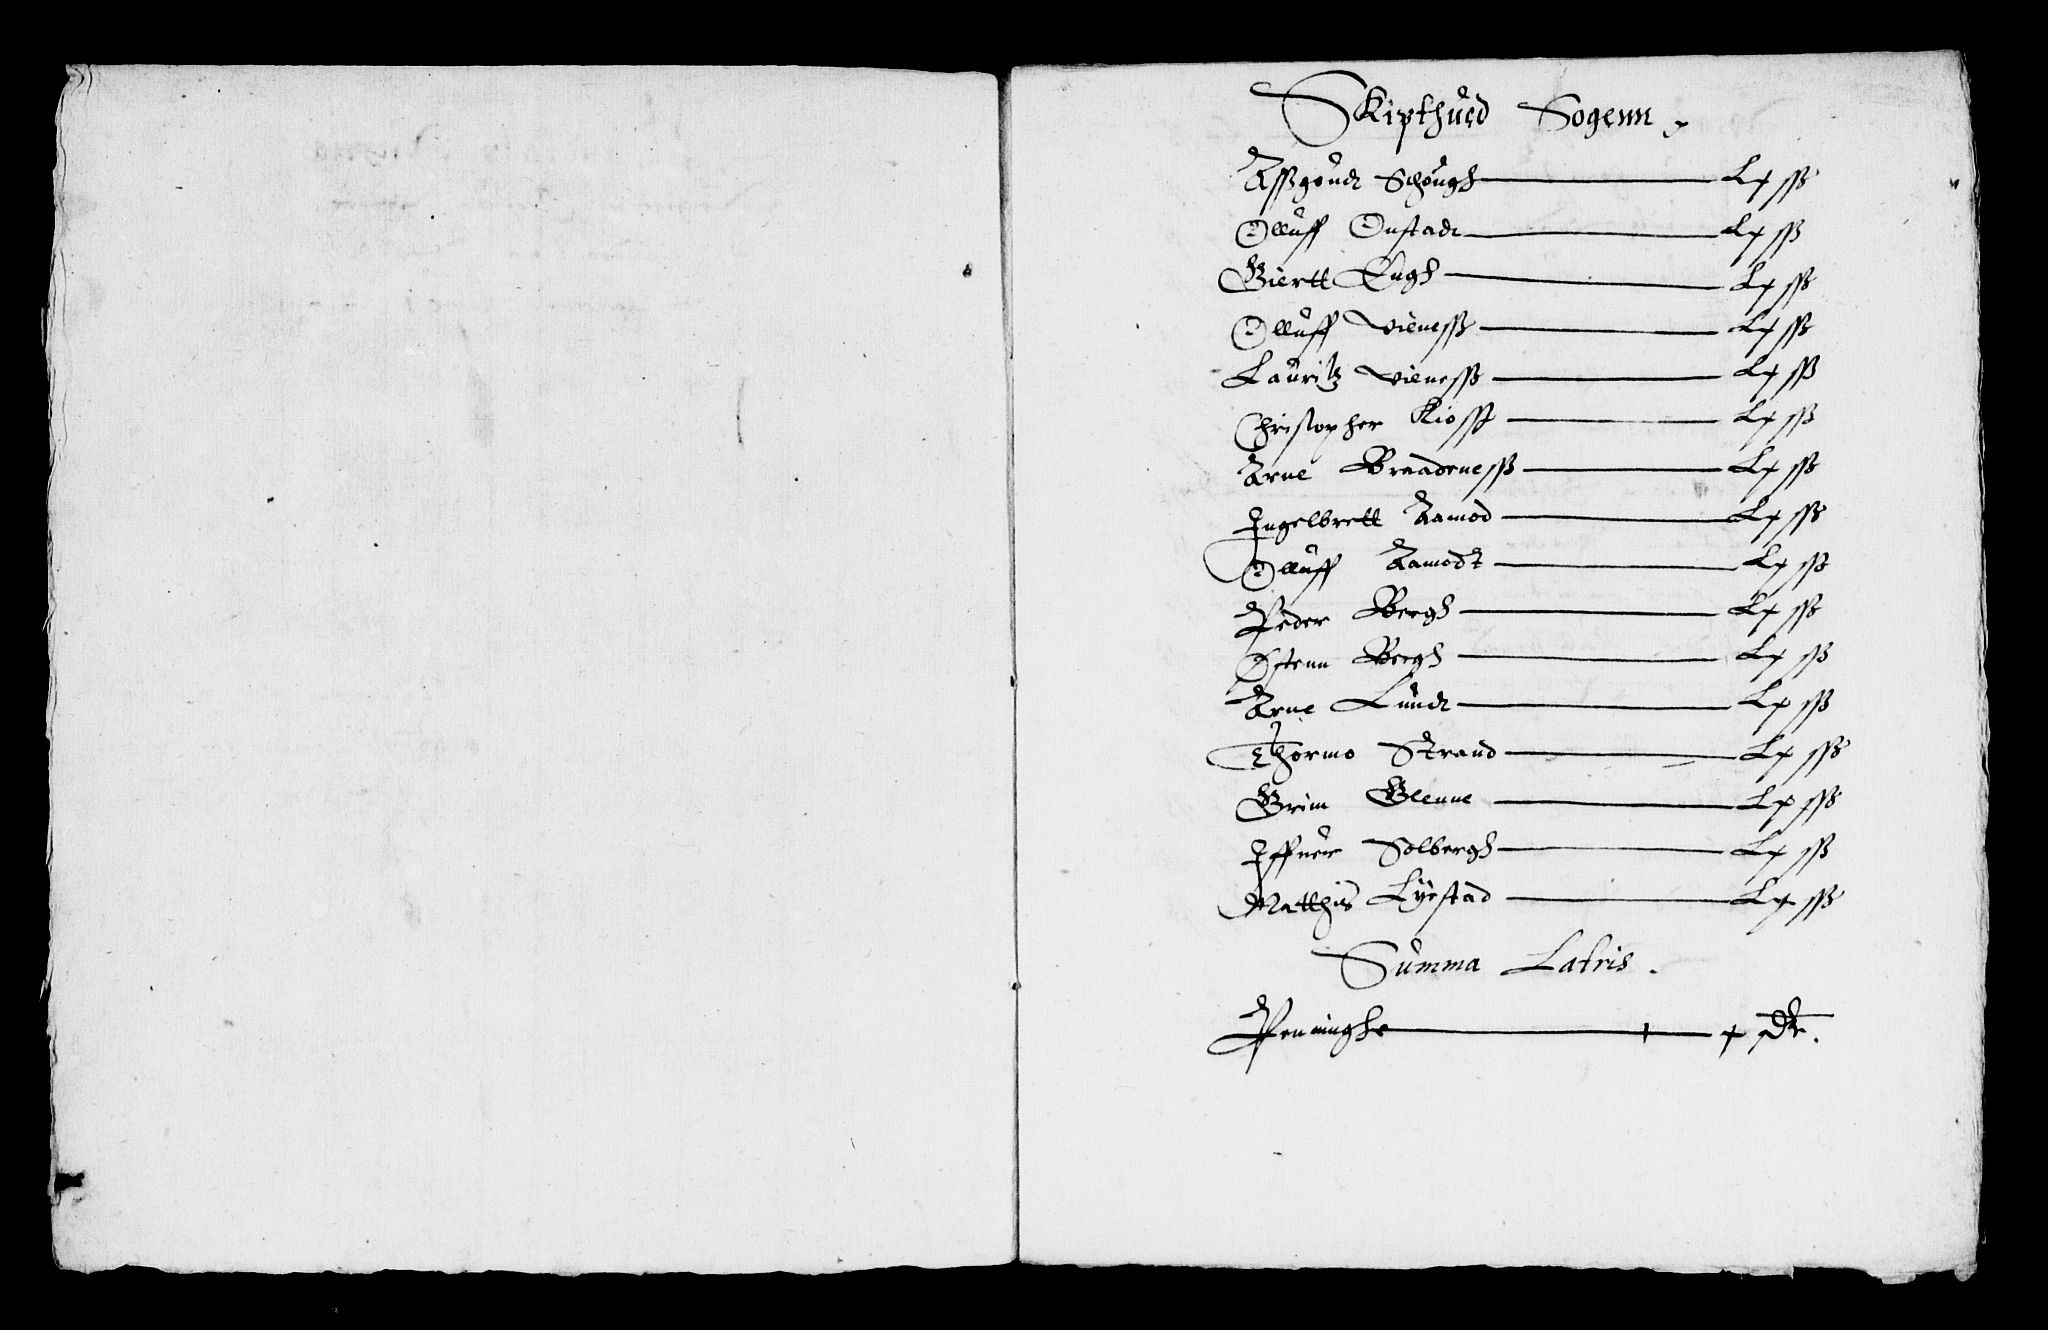 Skipthued Sogenn
Assgoudt Schough Lx sß
Olluff Onstadt Lx sß
Giertt Engh Lx sß
Olluff Vieness Lx sß
Lauritz Vieness Lx sß
Christopher Lx sß
Arne Braadeness Lx sß
Ingelbrett Aamod Lx sß
Olluff Aamodt Lx sß
Peder Bergh Lx sß
Ostenn Bergh Lx sß
Arne Lundt Lx sß
Thormo Strand Lx sß
Grim Glenne Lx sß
Iffuer Solbergh Lx sß
Matthis Lyestad Lx sß
Summa Latris.
Penninghe x dlr.